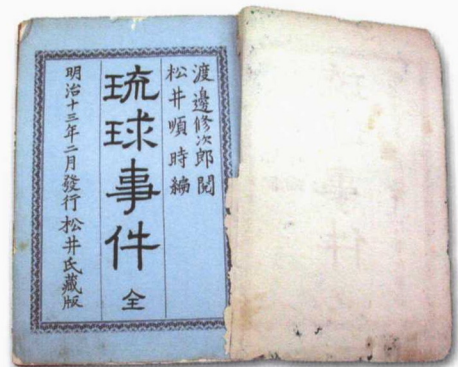 渡邊修次郎閱
松井順時編
琉球事件 全
明治十三年二月發行 松井氏藏版